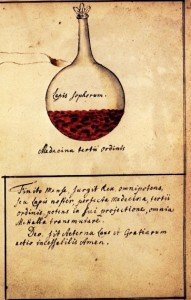 Lapis Sophorum.
Medicina tertii ordinis
Finito Mense, surgit Rex omnipotens,
seu Lapis noster, perfecta Medicina, tertii
ordinis, potens in sui projectione, omnia
Metalla transmutare.
Deo, sit Aeterna Laus et Gratiarum
actio ineffabilis Amen.